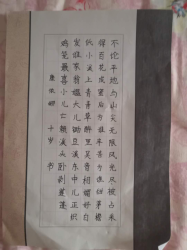 不论平地与山尖无限风光尽被占采
得百花成蜜后为谁辛苦为谁甜茅檐
低小溪上青青草醉里吴音相媚好白
发谁家翁媪大儿锄豆溪东中儿正织
鸡笼最喜小儿亡赖溪头卧剥莲蓬
十岁 书